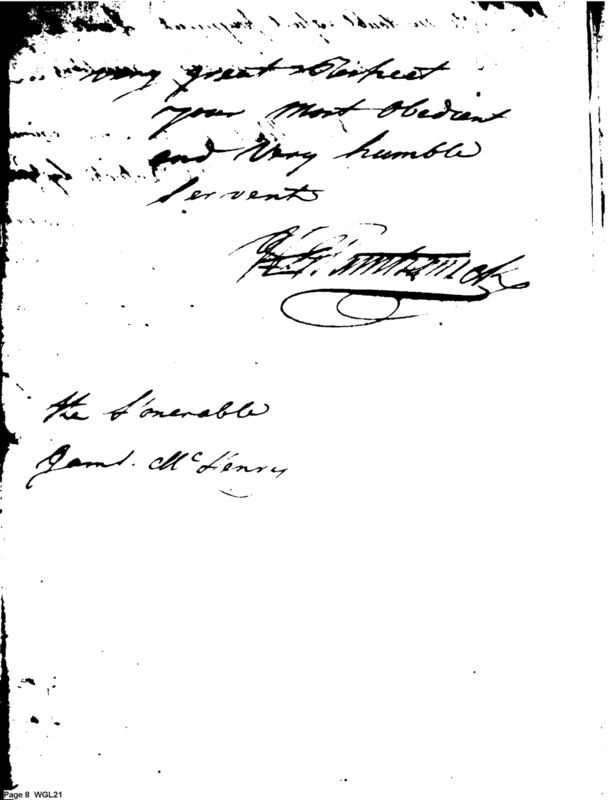 very great Respect
your most Obedient
and Very humble
Servent
J F Hamtramck
the Honerable
Jams. McHenry
Page 8 WGL21